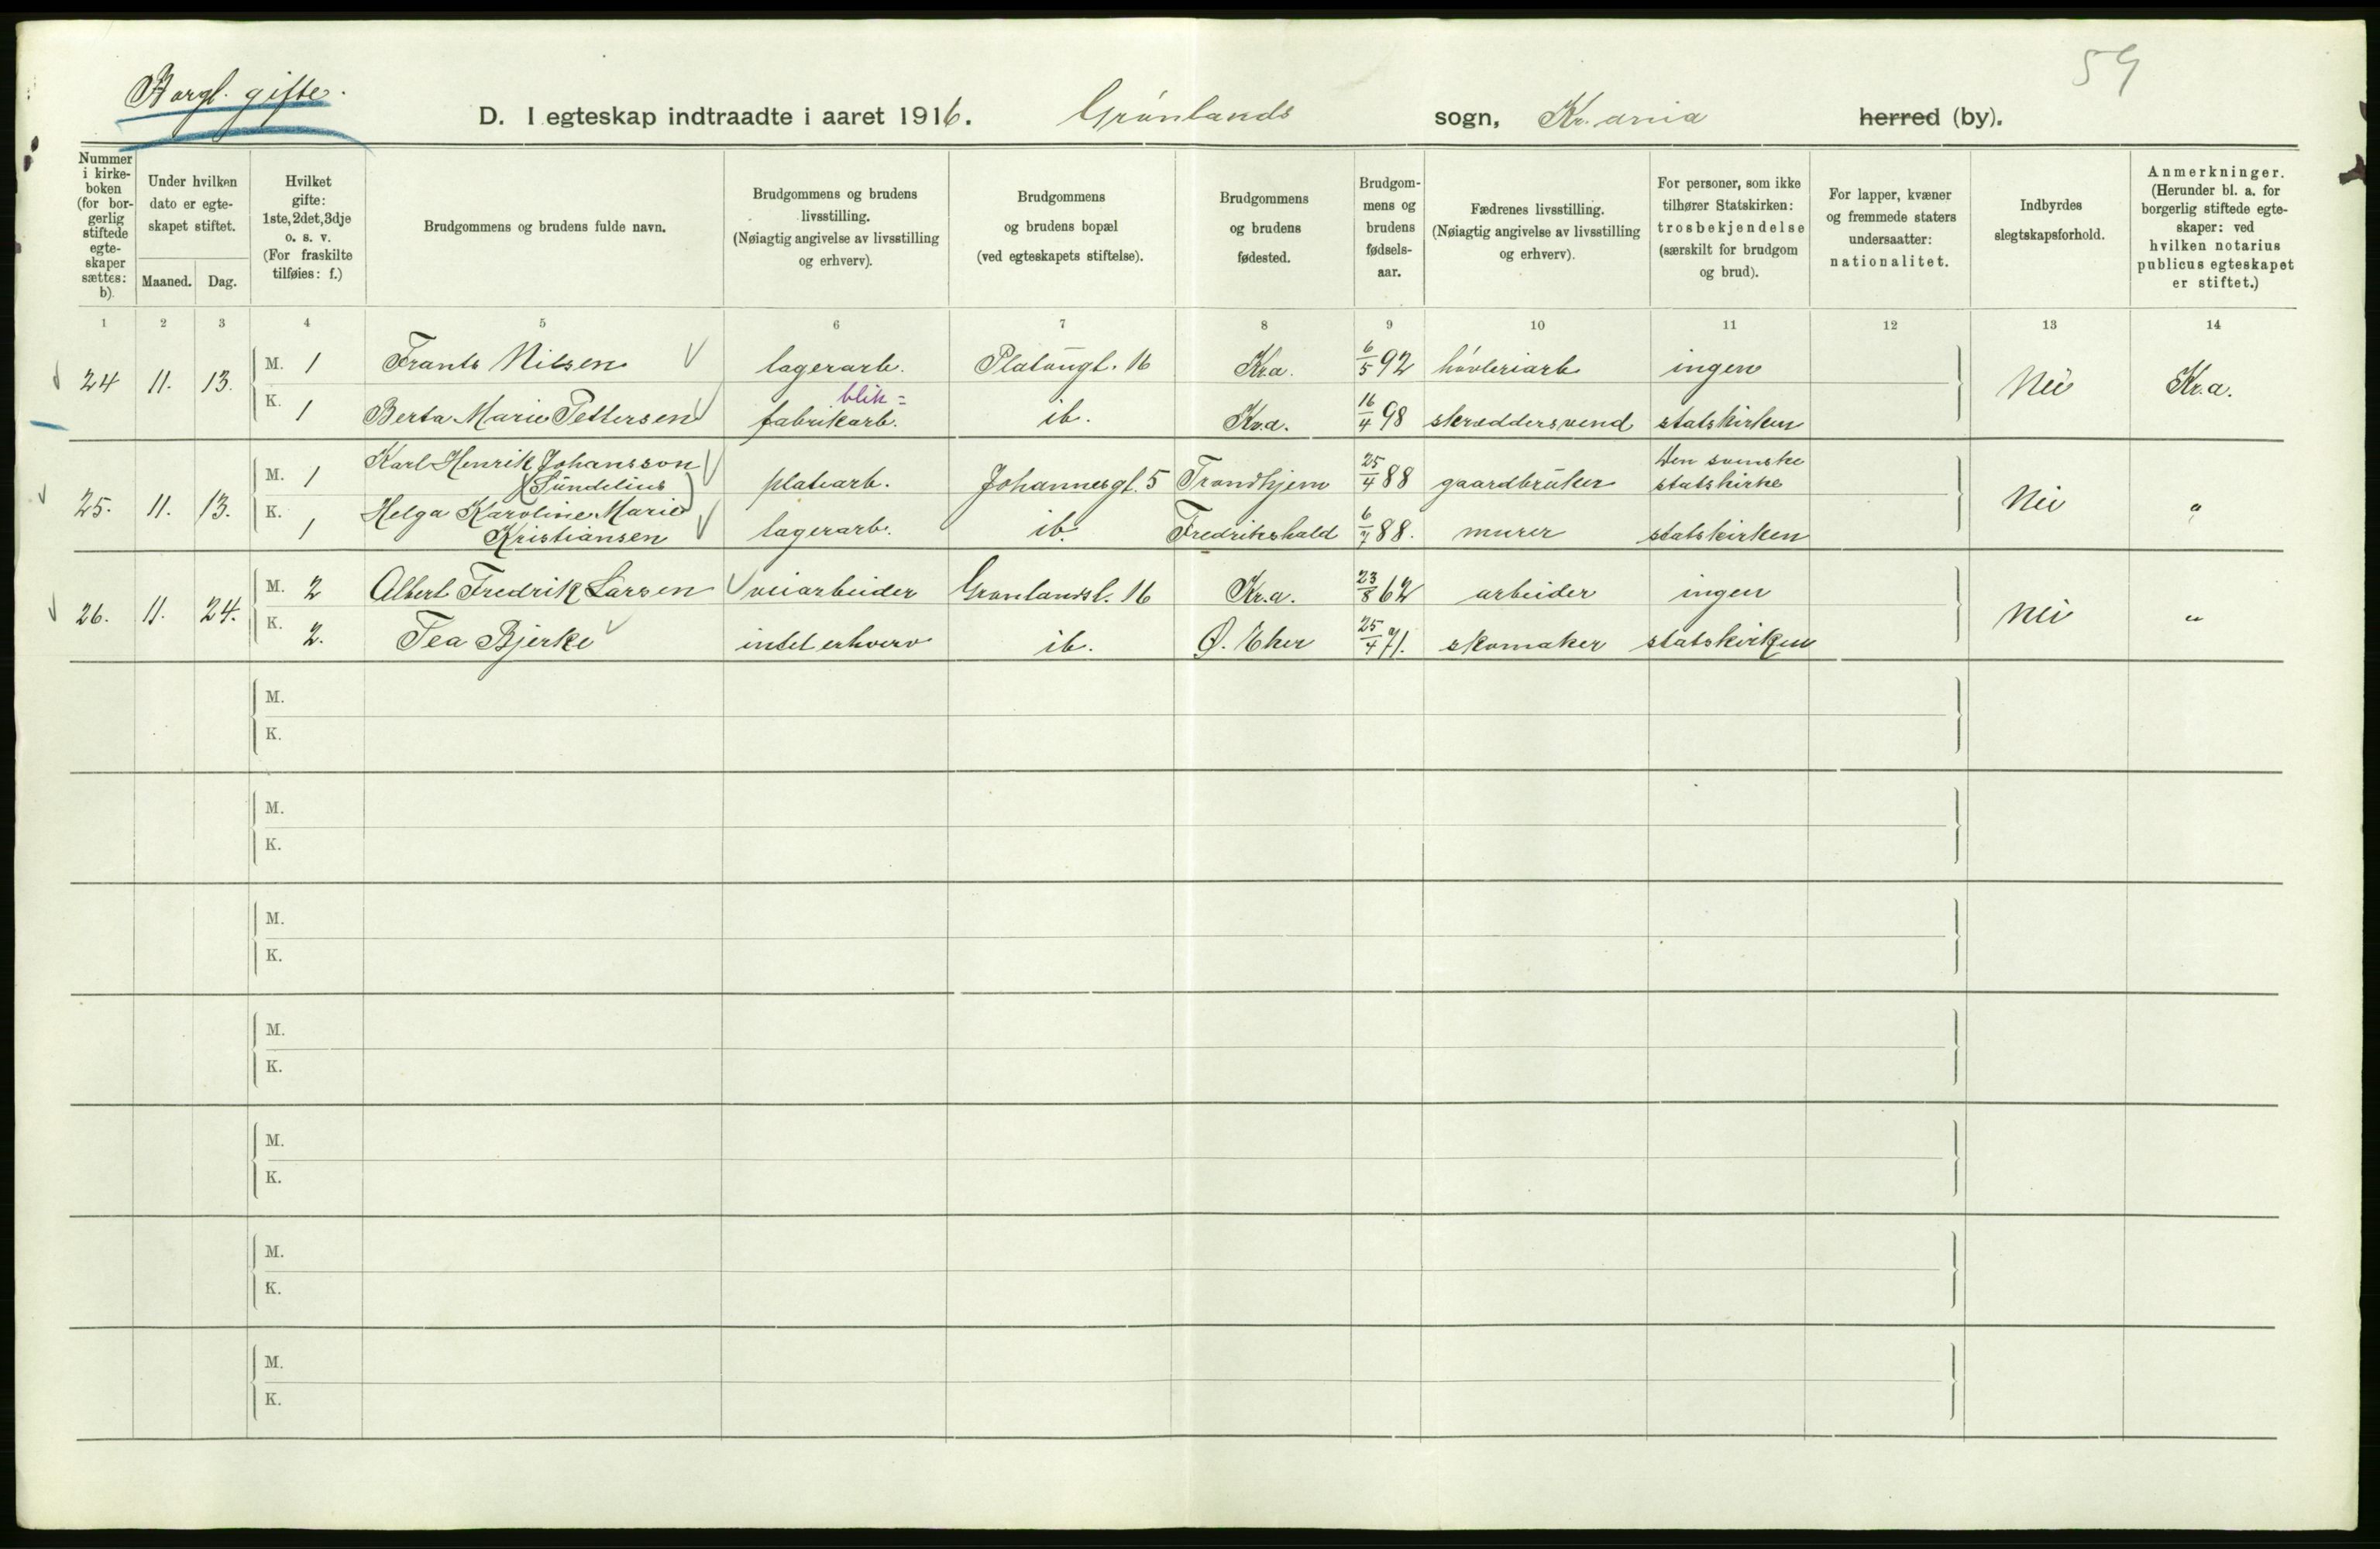 59
Borgl. gifte.
D. I egteskap indtraadte i aaret 1916. Grønlands sogn, Kr.ania herred (by).
Nummer i kirke- boken (for bor- gerlig stiftede egte- skaper sættes: b).
Under hvilken dato er egte- skapet stiftet.
Maaned. Dag.
Hvilket gifte: 1ste, 2det, 3dje o. s. v. (For fraskilte tilføies: f.)
Brudgommens og brudens fulde navn.
Brudgommens og brudens livsstilling. (Nøiagtig angivelse av livsstilling og erhverv).
Brudgommens og brudens bopæl (ved egteskapets stiftelse).
Brudgommens og brudens fødested.
Brudgom- mens og brudens fødsels- aar.
Fædrenes livsstilling. (Nøiagtig angivelse av livsstilling og erhverv).
For personer, som ikke tilhører Statskirken: trosbekjendelse (særskilt for brudgom og brud).
For lapper, kvæner og fremmede staters undersaatter: nationalitet.
Indbyrdes slegtskapsforhold.
Anmerkninger. (Herunder bl. a. for borgerlig stiftede egte- skaper: ved hvilken notarius publicus egteskapet er stiftet.)
1 2 3 4 5 6 7 8 9 10 11 12 13 14
24 11. 13. M. 1 Frants Nilsen lagerarb. Platougt. 16 Kr.a. 6/5 92 høvleriarb ingen Nei Kr.a.
blik=
K. 1 Berta Marie Pettersen fabrikarb. ib. Kr.a. 16/4 98 skræddersvend statskirken
Karl Henrik Johansson Den svenske
25. 11. 13. M. 1 (Sundelius) platearb. Johannesgt. 5 Trondhjem 25/4 88 gaardbruker statskirke Nei "
K. Helga Karoline Marie
1 Kristiansen lagerarb. ib. Fredrikshald 6/7 88. murer statskirken
26. 11. 24. M. 2 Albert Fredrik Larsen veiarbeider Grønlandsl. 16 Kr.a. 23/8 62 arbeider ingen Nei "
K. 2. Tea Bjerke intet erhverv ib. Ø. Eker 25/4 71. skomaker statskirken
M.
K.
M.
K.
M.
K.
M.
K.
M.
K.
M.
K.
M.
K.